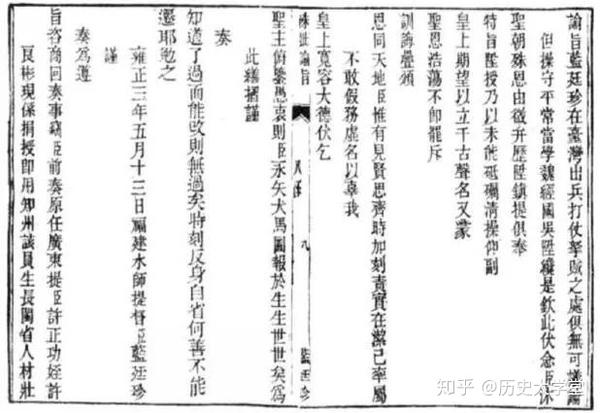 諭旨藍廷珍在臺灣出兵打仗拏賊之處俱無可議論
但操守平常當學魏經國吳陞纔是欽此伏念臣沐
聖朝殊恩由微弁歷陞鎮提俱奉
特旨陞授乃以未能砥礪清操仰副
皇上期望以立千古聲名又蒙
聖恩浩蕩不卽罷斥
訓誨疊頒
恩同天地臣惟有見賢思齊時加刻責實在潔己率屬
不敢假務虛名以辜我
皇上寬容大德伏乞
硃批諭旨 八函 九 藍廷珍
聖主俯鑒愚衷則臣永矢犬馬圖報於生生世世矣爲
此繕摺謹
奏
知道了過而能改則無過矣時刻反身自省何善不能
遷耶勉之
雍正三年五月十三日福建水師提督臣藍廷珍
謹
奏爲遵
旨咨商回奏事竊臣前奏原任廣東提臣許正功姪許
良彬現係捐授卽用知州該員生長閩省人材壯
知乎 @历史大学堂